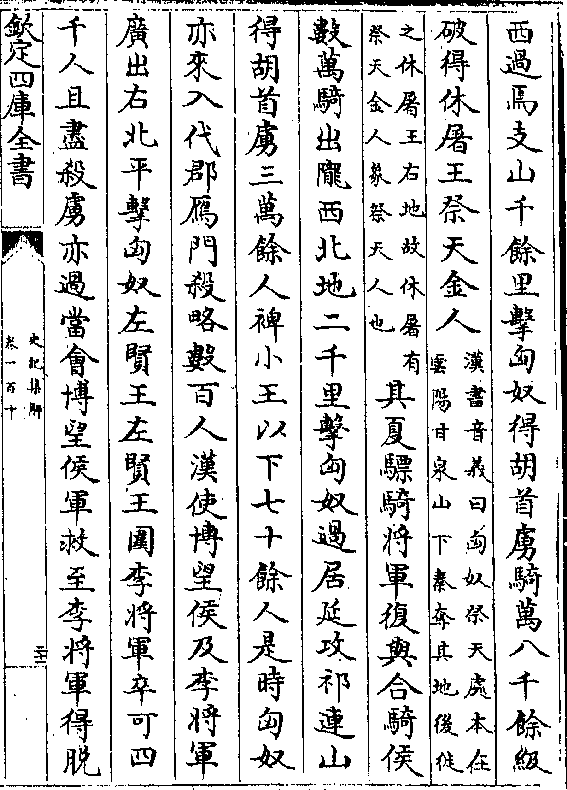 西過焉支山千餘里擊匈奴得胡首虜騎萬八千餘級
破得休屠王祭天金人漢書音義曰匈奴祭天處本在
雲陽甘泉山下秦奪其地後徙
之休屠王右地故休屠有
祭天金人象祭天人也其夏驃騎將軍復與合騎侯
數萬騎出隴西北地二千里擊匈奴過居延攻祁連山
得胡首虜三萬餘人裨小王以下七十餘人是時匈奴
亦來入代郡雁門殺略數百人漢使博望侯及李將軍
廣出右北平擊匈奴左賢王左賢王圍李將軍卒可四
千人且盡殺虜亦過當會博望侯軍救至李將軍得脫
欽定四庫全書
史記集解
卷一百十